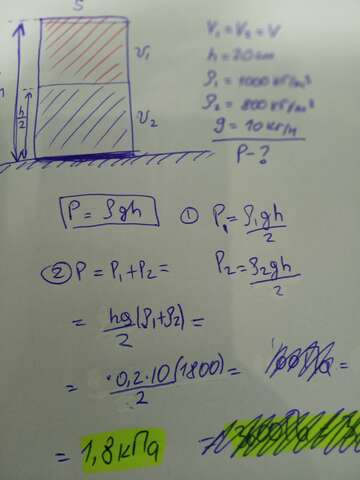 S
V₁ = V₂ = V
h = 20 см
ρ₁ = 1000 кг/м³
ρ₂ = 800 кг/м³
g = 10 кг/н
P - ?
V₁
h/2
V₂
P = ρgh
① P₁ = ρ₁gh/2
② P = P₁ + P₂ =
P₂ = ρ₂gh/2
= hg/2 (ρ₁+ρ₂) =
= 0,2·10/2 (1800) =
=
= 1,8 кПа